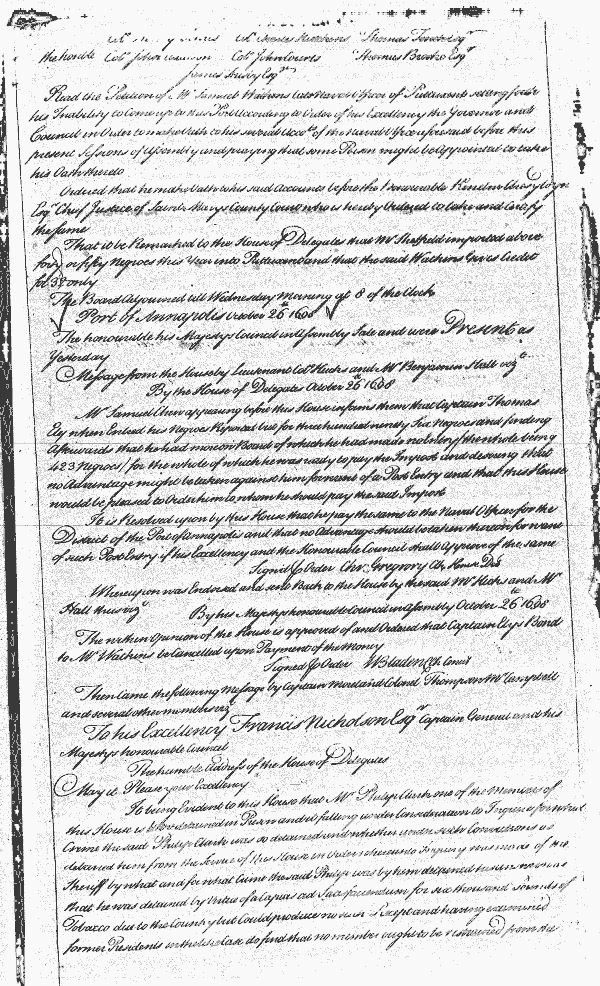 Col. Charles Hutchens Thomas Tench Esqr
the honble Col. John Col. John Courts Thomas Brooke Esqr
James Frisby Esqr
Read the Petition of Mr Samuel Watkins late Naval Officer of Putuxent setting forth
his Inability to Come up to this Port according to Order of his Excellency the Governor and
Council in Order to make Oath to his several Accots of the Naval Office pursued before this
present Sessions of Assembly and praying that some Person might be Appointed to take
his Oath thereto
Ordered that he make Oath to his said Accounts before the Honourable Kenelm Cheseldyn
Esqr Chief Justice of Saint Marys County Court who is hereby Ordered to take and Certify
the same
That it be Remarked to the House of Delegates that Mr Sheffeild imported above
forty or fifty Negroes this Year into Putuxent and that the said Watkins Gives Credit
for 38 only
The Board Adjourned till Wednesday Morning at 8 of the Clock
Port of Annapolis October 26th 1698
The honourable his Majestys Council in Assembly Sate and were Present as
Yesterday
Message from the House by Lieutenant Col. Hicks and Mr Benjamin Hall vizt
By the House of Delegates October 26th 1698
Mr Samuel Chew appearing before this House informs them that Captain Thomas
Ely when Entred his Negroes Reported but for three hundred ninety Six Negroes and finding
Afterwards that he had more on Board of which he had made no Entry (the whole being
423 Negroes) for the whole of which he was ready to pay the Impost and desiring that
no Advantage might be taken against him for want of a Post Entry and that this House
would be pleased to Order him to whom he should pay the said Impost
It is Resolved upon by this House that he pay the same to the Naval Officer for the
District of the Port of Annapolis and that no Advantage should be taken thereon for want
of such Post Entry if his Excellency and the Honourable Council shall Approve of the same
Signed P Order Chr. Gregory Clk House Del
Whereupon was Endorsed and sent Back to the House by the said Mr Hicks and Mr
Hall thus vizt By his Majestys honourable Council in Assembly October 26th 1698
The within Opinion of the House is approved of and Ordered that Captain Elys Bond
to Mr Watkins be Cancelled upon Payment of the Money
Signed P Order W Bladen Clk Council
Then Came the following Message by Captain Moreland Colonel Thompson Mr Campbell
and several other members vizt
To his Excellency Francis Nicholson Esqr Captain General and his
Majestys honourable Council
The humble Address of the House of Delegates
May it Please your Excellency
It being Evident to this House that Mr Philip Clark one of the Members of
this House is now detained in Prison and it falling under Consideration to Inquire for what
Crime the said Philip Clark was so detained and whether under such Convictions as
debarred him from the Service of this House in Order whereunto Inquiry was made of the
Sheriff by what and for what Cause the said Philip was by them detained
that he was detained by Virtue of a Capias ad Satisfaciendum for six thousand Pounds of
Tobacco due to the County but Could produce no such Precept and having examined
former Presidents in the like Case do find that no member ought to be restrained from the